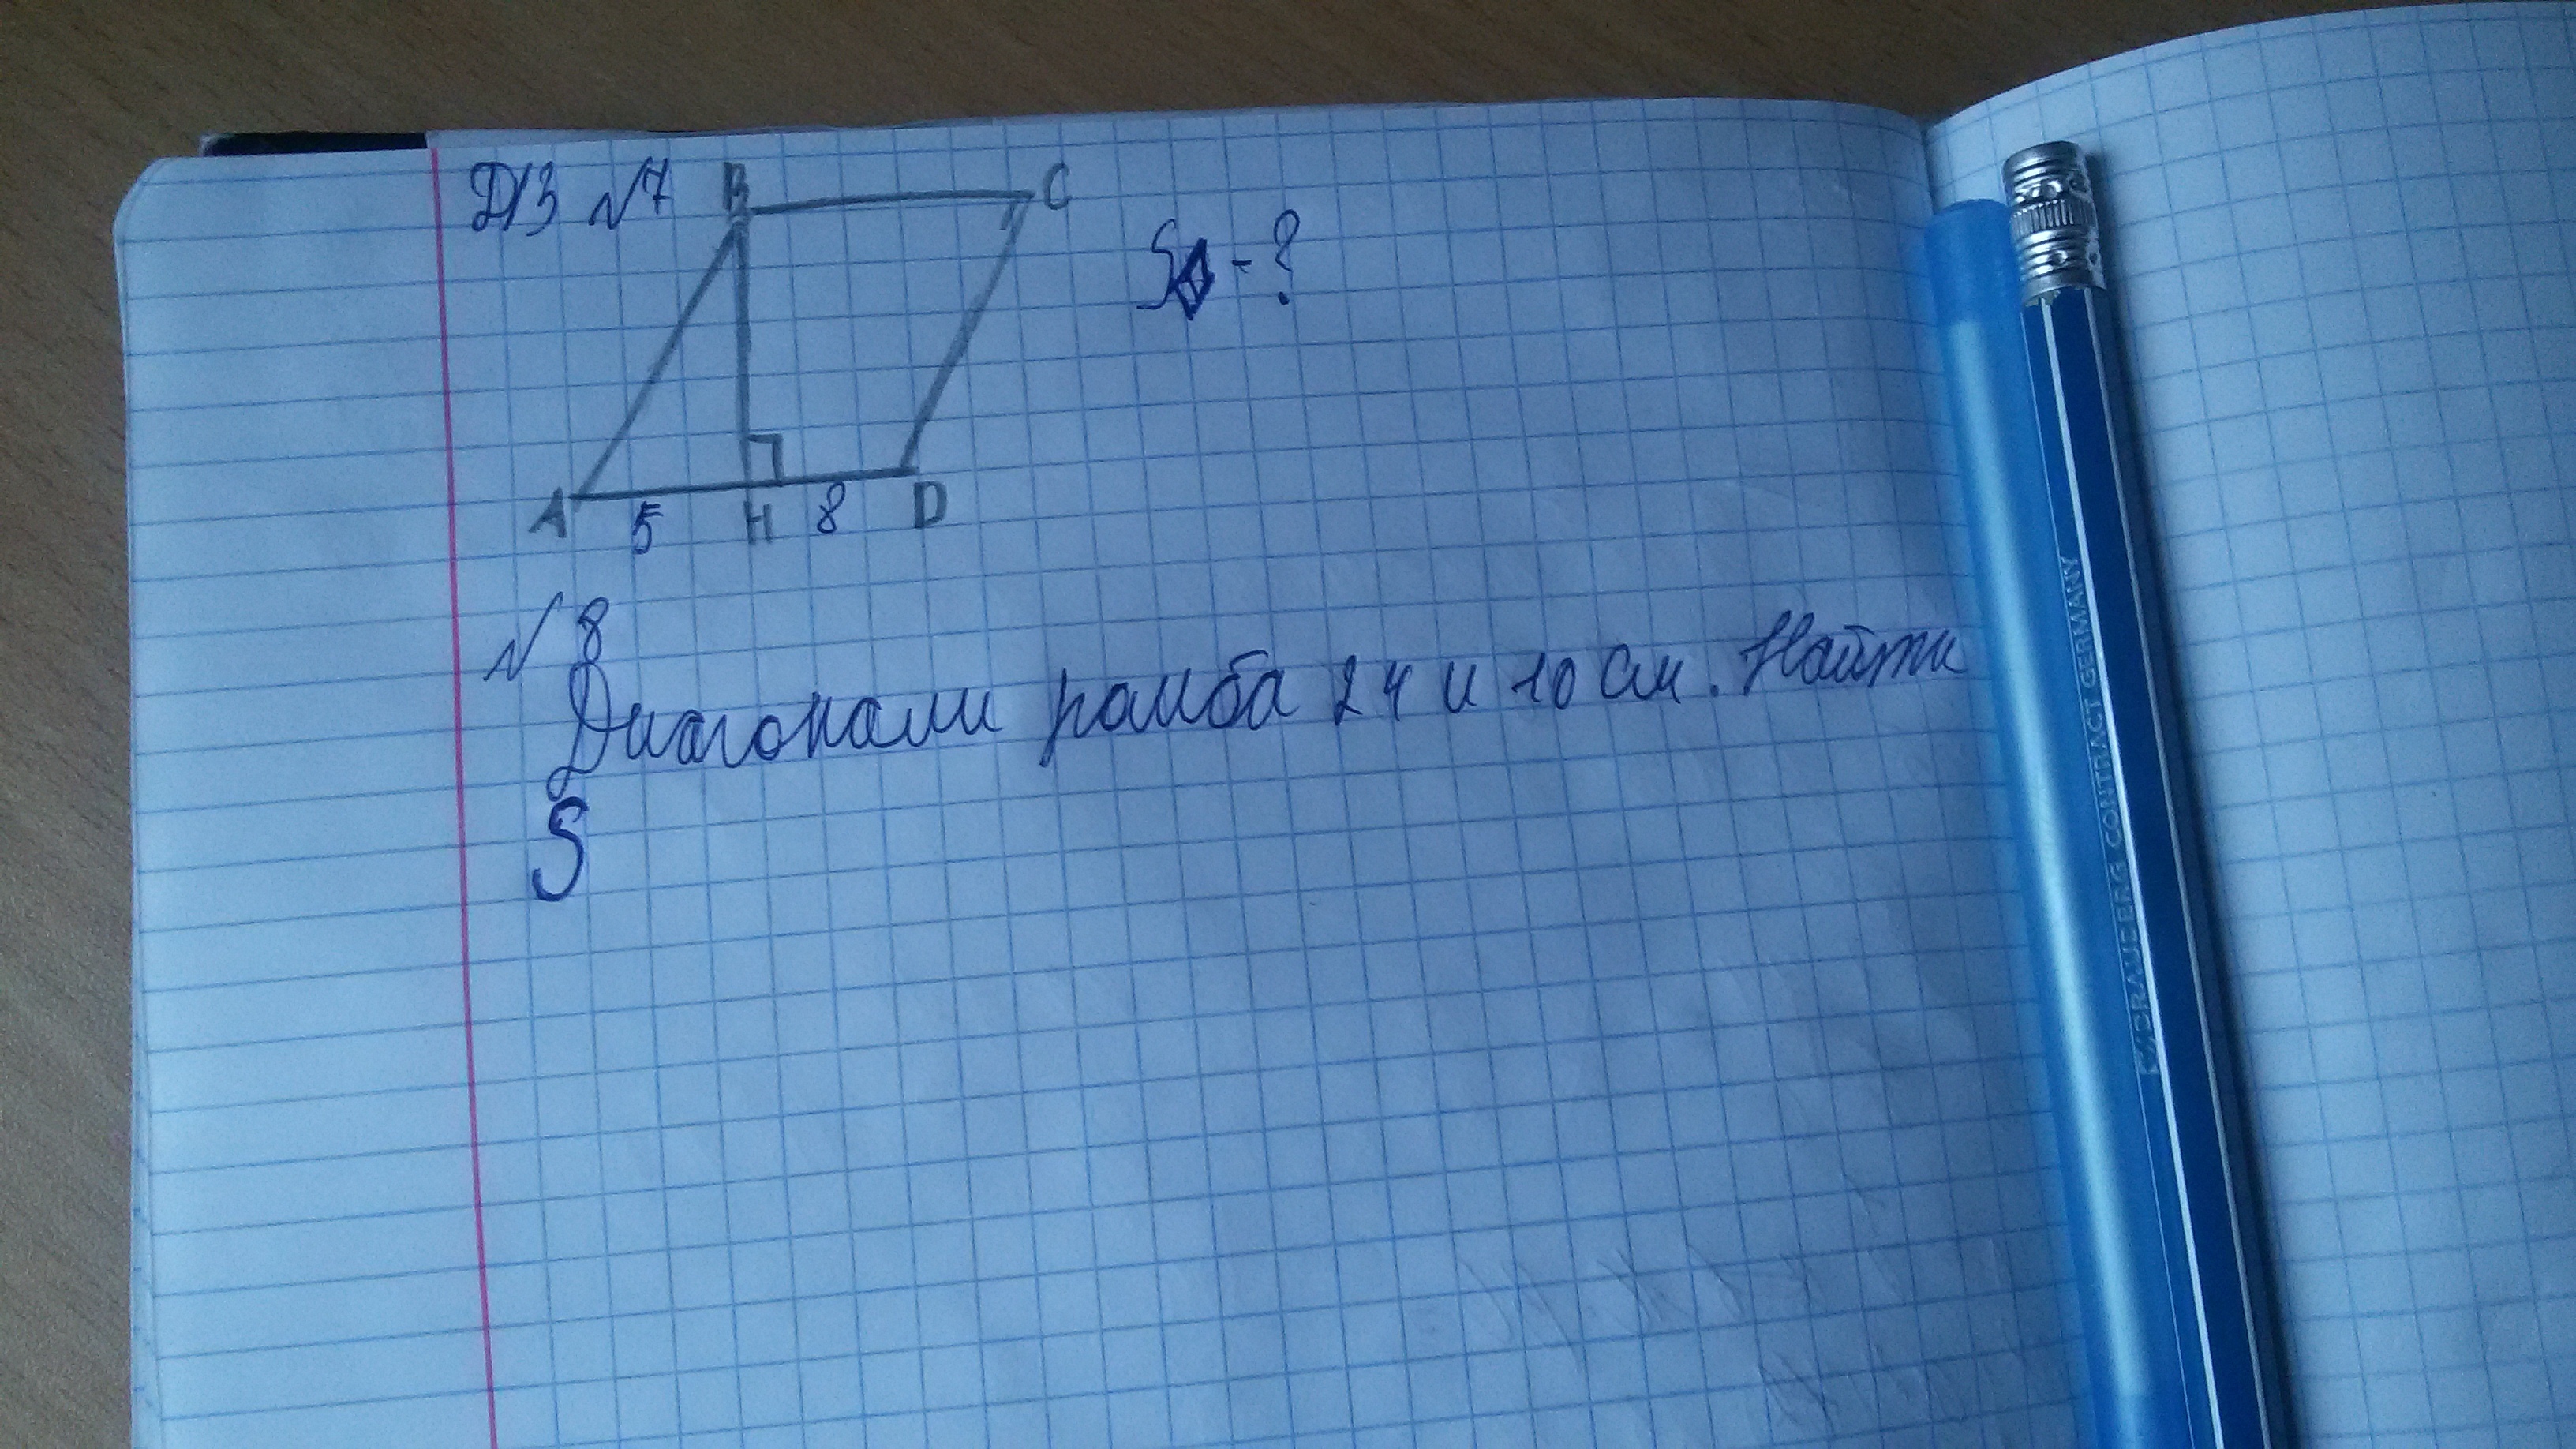 Д/З №7
B C
S◊ - ?
A 5 H 8 D
№ 8
Диагонали ромба 24 и 10 см. Найти
S
CONTRACT GERMANY